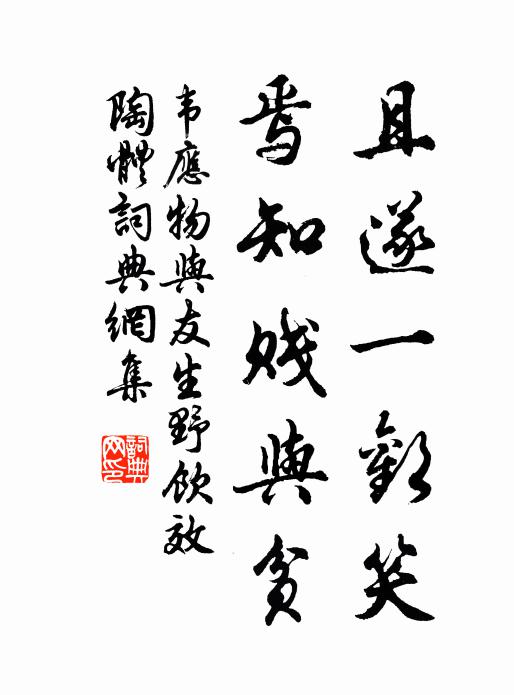 且遂一歡笑
焉知賤與貧
韦應物與友生野飲效
陶體詞典網集
詞典
网印